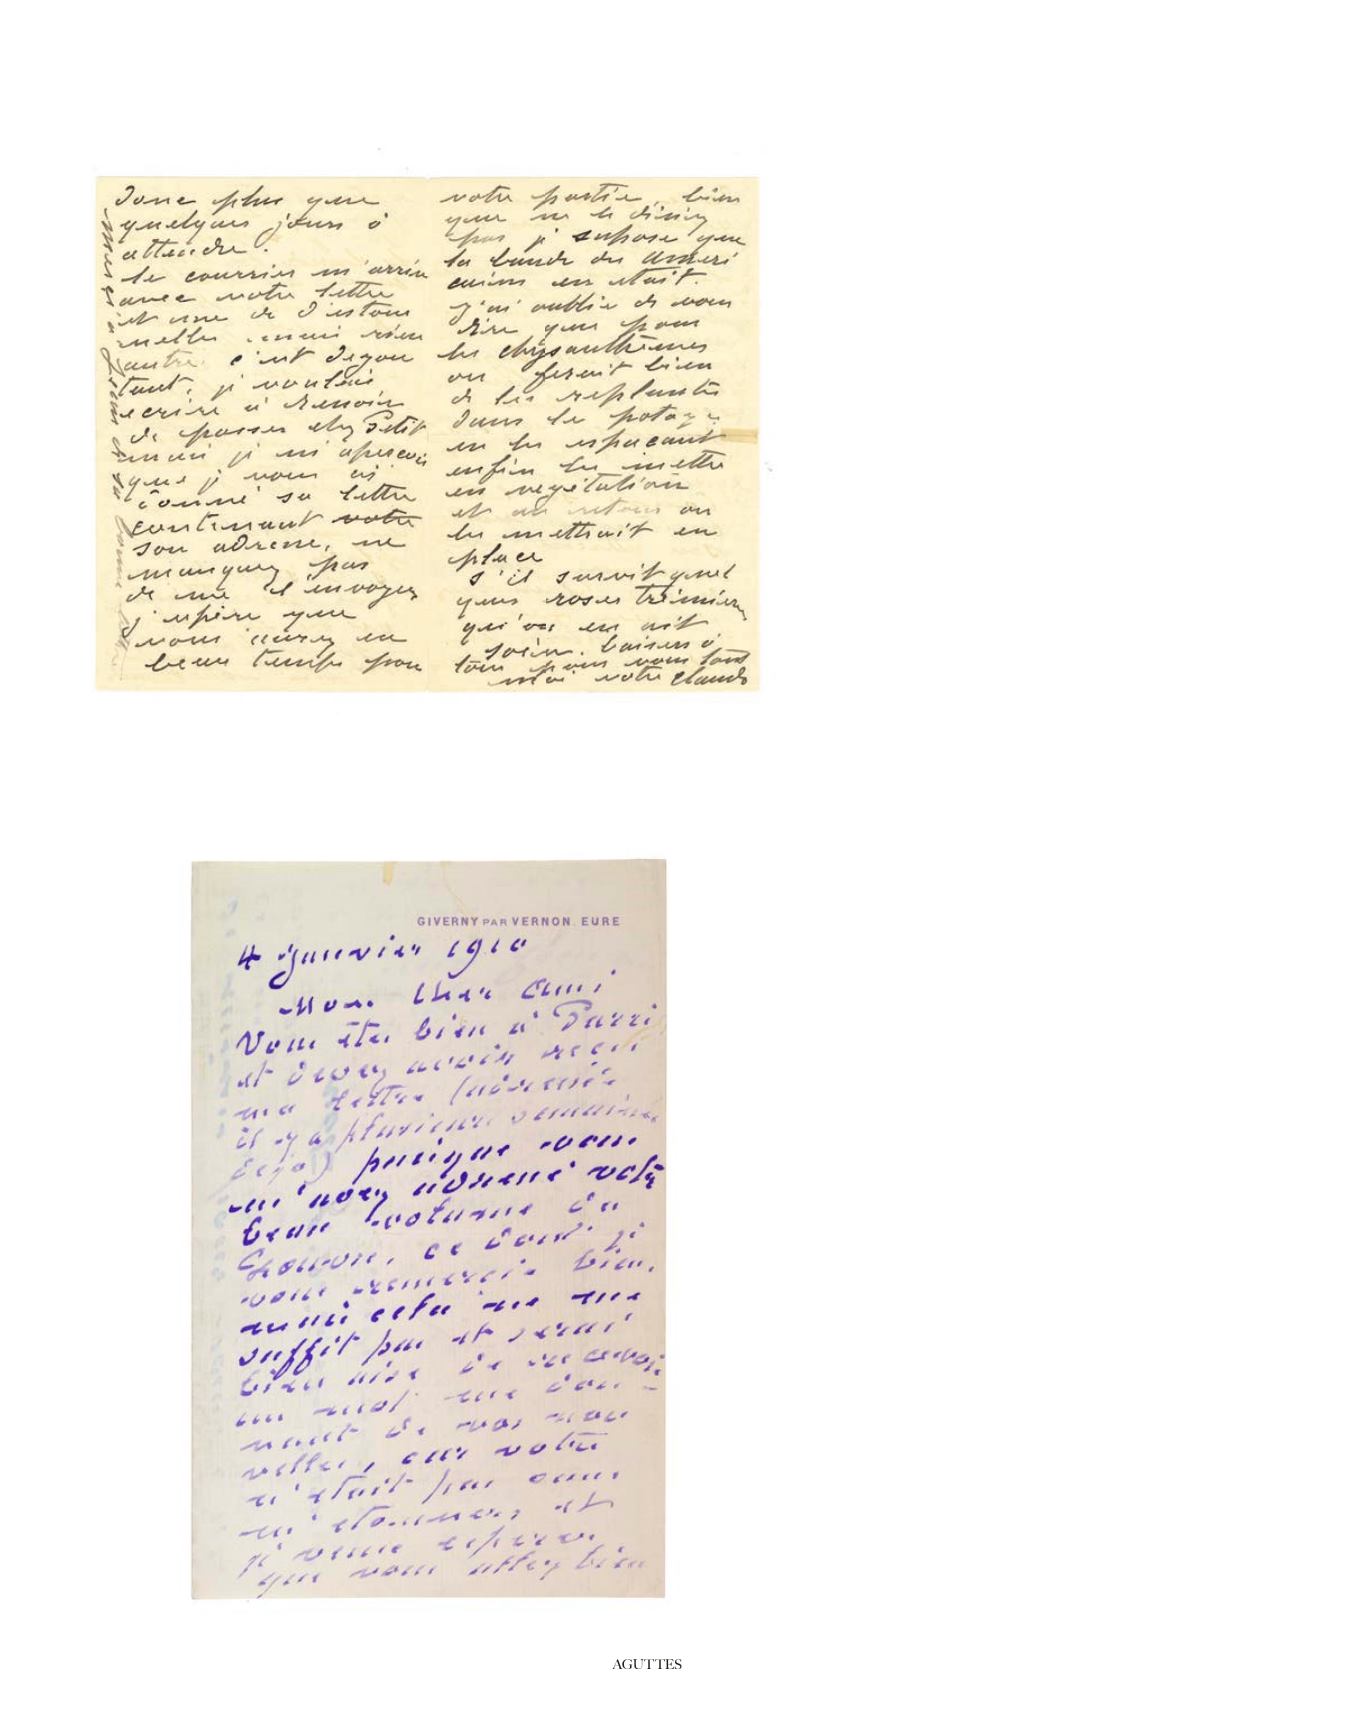 Donc plus que
quelques jours à
attendre.
le courrier m'arrive
avec votre lettre
et une de Destou
nelles mais rien
autre. c'est dégou
tant, je voulais
ecrire à Renoir
de passer chez Petit
mais je m'aperçois
que je vous ai
donné sa lettre
contenant votre
son adresse, ne
manquez pas
de me l'envoyer
j'espère que
vous aurez eu
beau temps pour
votre partie, bien
que ne le disiez
pas je supose que
la bande des Ameri
cains en était.
j'ai oublié de vous
dire que pour
les chrysanthèmes
on ferait bien
de les replanter
dans le potager
en les espaçant
enfin les mettre
en vegétation
et au retour on
les mettrait en
place
s'il survit quel
ques roses trémières
qu'on en ait
soin. baisers à
tous pour vous tous
moi votre Claude
GIVERNY PAR VERNON EURE
4 Janvier 1910
Mon cher ami
Vous êtes bien à Paris
et devez avoir reçu
ma lettre (adressée
il y a plusieurs semaines
déjà) puisque vous
m'avez adressé votre
beau volume
ce dont je
vous remercie bien,
mais cela ne me
suffit pas et serai
bien aise de recevoir
un mot me don-
nant de vos nou
velles, car votre
n'était pas sans
m'étonner, et
je veux espérer
que vous allez bien
AGUTTES